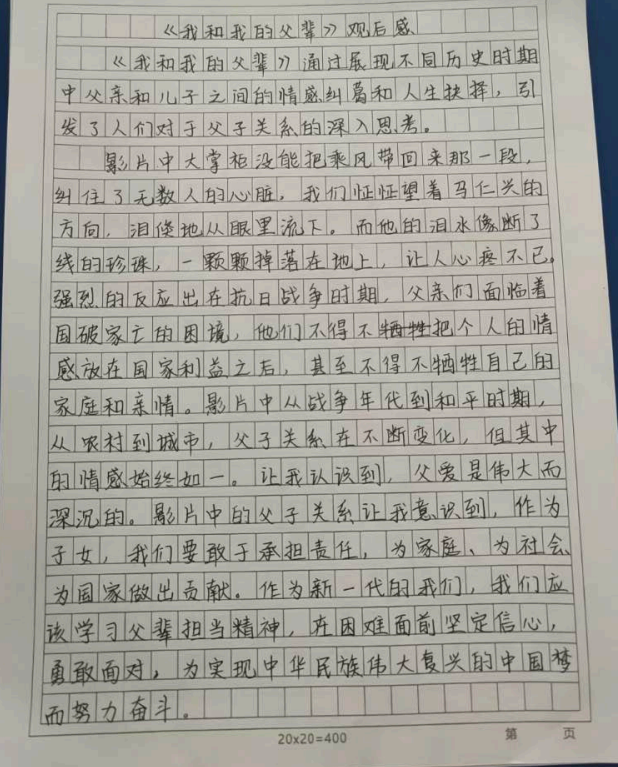 《我和我的父辈》观后感
《我和我的父辈》通过展现不同历史时期
中父亲和儿子之间的情感纠葛和人生抉择，引
发了人们对于父子关系的深入思考。
影片中大掌柜没能把乘风带回来那一段，
纠住了无数人的心脏，我们怔怔望着马仁兴的
方向，泪倏地从眼里流下。而他的泪水像断了
线的珍珠，一颗颗掉落在地上，让人心疼不已。
强烈的反应出在抗日战争时期，父亲们面临着
国破家亡的困境，他们不得不牺牲把个人的情
感放在国家利益之后，甚至不得不牺牲自己的
家庭和亲情。影片中从战争年代到和平时期，
从农村到城市，父子关系在不断变化，但其中
的情感始终如一。让我认识到，父爱是伟大而
深沉的。影片中的父子关系让我意识到，作为
子女，我们要敢于承担责任，为家庭、为社会、
为国家做出贡献。作为新一代的我们，我们应
该学习父辈担当精神，在困难面前坚定信心，
勇敢面对，为实现中华民族伟大复兴的中国梦
而努力奋斗。
20x20=400 第 页